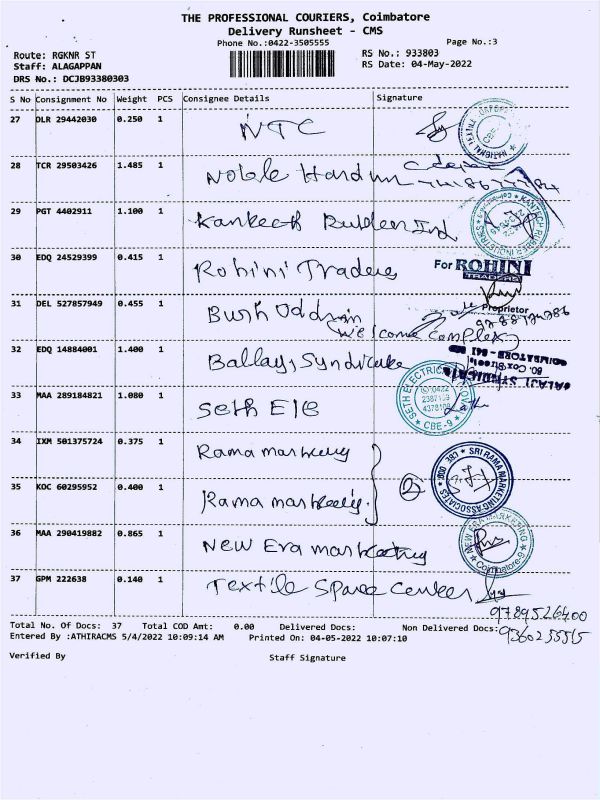 THE PROFESSIONAL COURIERS, Coimbatore
Delivery Runsheet - CMS
Phone No.:0422-3505555
Page No.:3
Route: RGKNR ST
Staff: ALAGAPPAN
DRS No.: DCJB93380303
RS No.: 933803
RS Date: 04-May-2022
S No Consignment No Weight PCS Consignee Details Signature
27 DLR 29442030 0.250 1 NTC
28 TCR 29503426 1.485 1 Noble
29 PGT 4402911 1.100 1 Ind
KANTECH RUBBER INDUSTRIES
30 EDQ 24529399 0.415 1 Rohini Traders
For ROHINI
TRADERS
Proprietor
31 DEL 527857949 0.455 1
Welcome Complex
32 EDQ 14884001 1.400 1 Syndicate
COIMBATORE - 641
33 MAA 289184821 1.080 1 Seth Ele
SETH ELECTRIC
0422
CBE-9
34 IXM 501375724 0.375 1 Rama marketing
35 KOC 60295952 0.400 1 Rama marketing
2
SRI RAMA MARKETING ASSOCIATES
36 MAA 290419882 0.865 1 New Era marketing
NEW ERA MARKETING
Coimbatore-9
37 GPM 222638 0.140 1 Textile Space Center
9789526400
9360255515
Total No. Of Docs: 37 Total COD Amt: 0.00 Delivered Docs: Non Delivered Docs:
Entered By :ATHIRACMS 5/4/2022 10:09:14 AM Printed On: 04-05-2022 10:07:10
Verified By Staff Signature